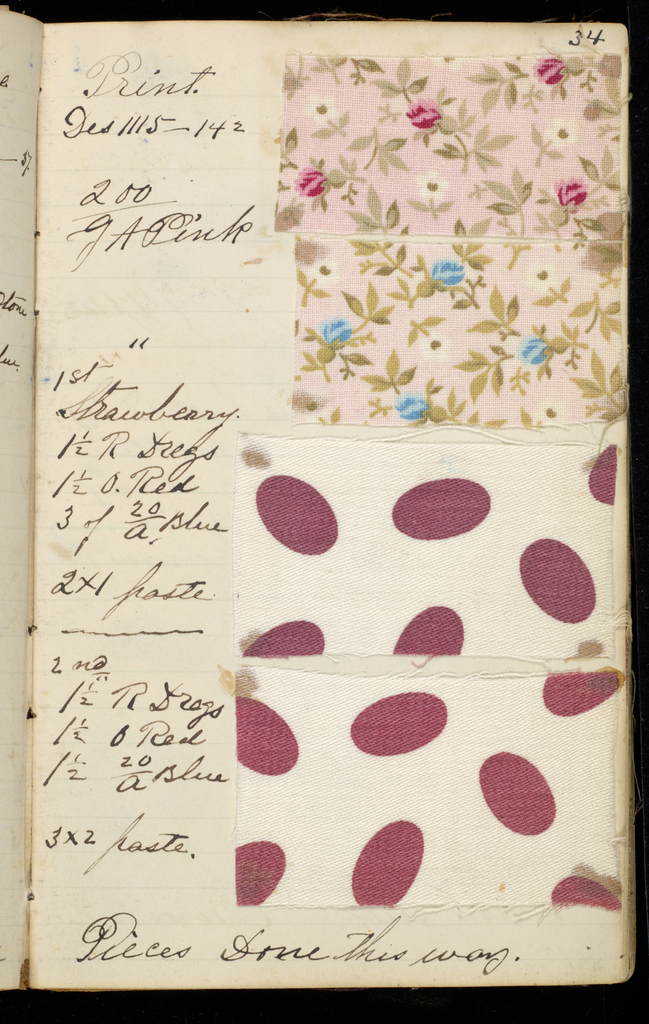 34
Print.
Des 1115 — 142
200
g A Pink
"
1st
Strawberry.
1½ R Dregs
1½ O. Red
3 of 20/A. Blue
2x1 paste
2nd
1½ R Dregs
1½ O Red
1½ 20/A Blue
3x2 paste.
Pieces Done this way.